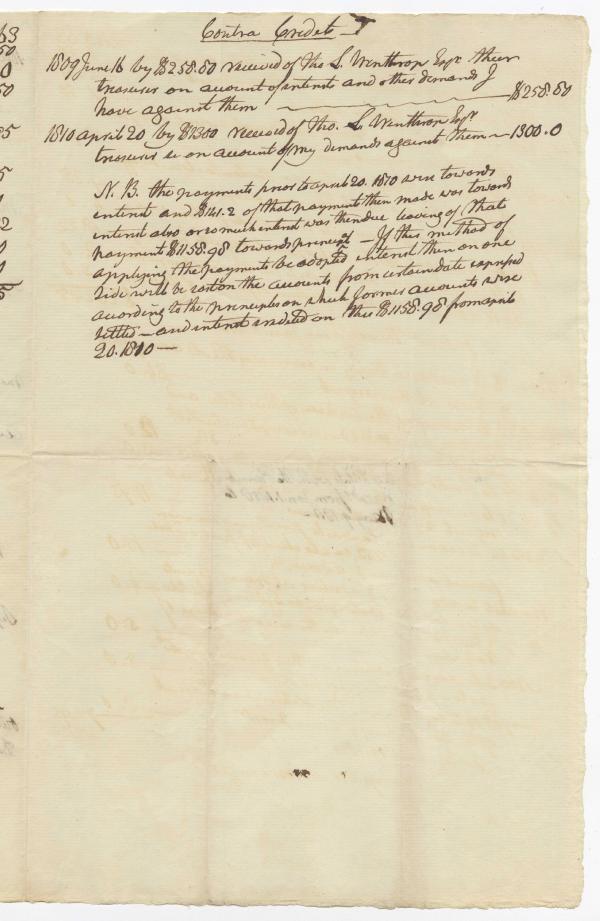 Contra Credits
1809 June 16 by $258.80 received of Tho L. Winthrop Esqr. their
treasurer on account of interest and other demands I
have against them $258.80
1810 april 20 by $1300 received of Tho. L Winthrop Esqr.
treasurer &c on account of my demands against them — 1300.0
N. B. the payments prior to april 20. 1810 were towards
interest and $141.2 of that payment then made was toward
interest also so much interest was then due leaving of that
payment $1158.98 towards principal — If this method of
applying the payments be adopted interest then on one
side will be cast on the accounts from certain date expressed
according to the principles on which former accounts were
settled — and interest credited on this $1158.98 from april
20. 1810 —